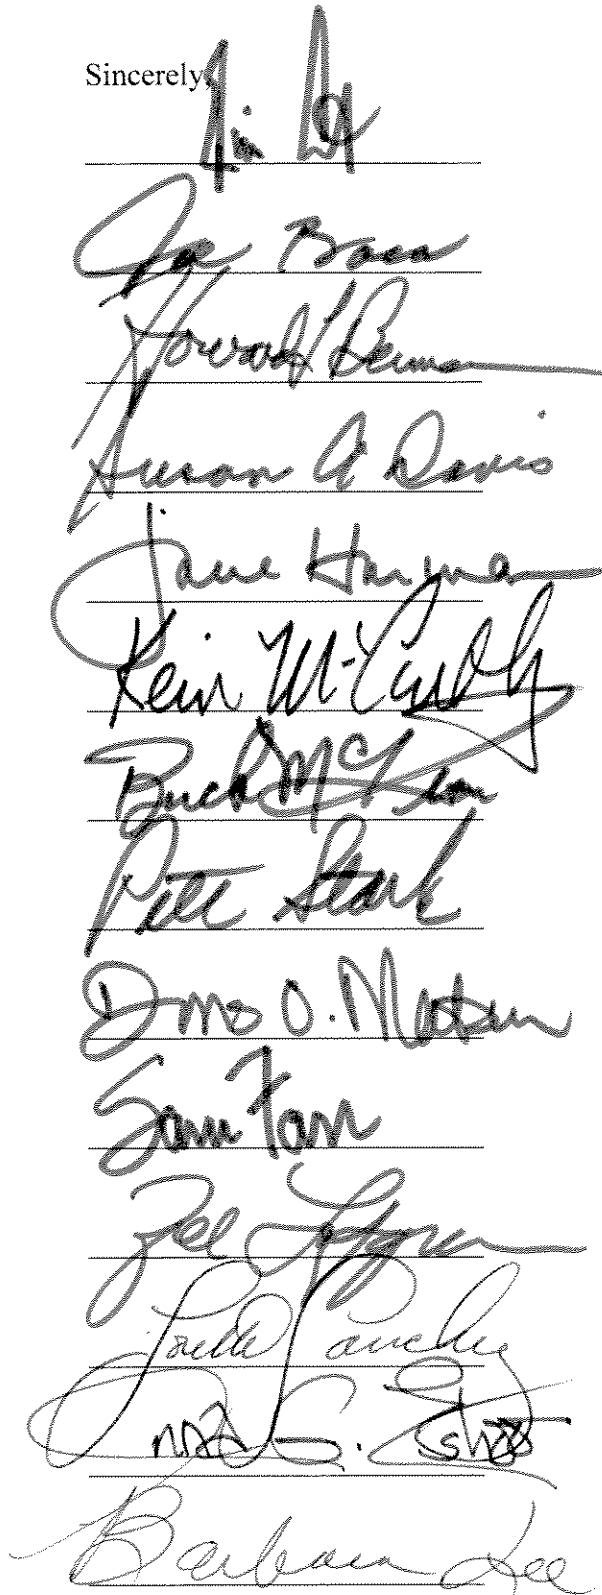 Sincerely,
Jim
Joe Baca
Howard L Berman
Susan A Davis
Jane Harman
Kevin McCarthy
Buck McKeon
Pete Stark
Doris O. Matsui
Sam Farr
Zoe Lofgren
Loretta Sanchez
Anna G. Eshoo
Barbara Lee